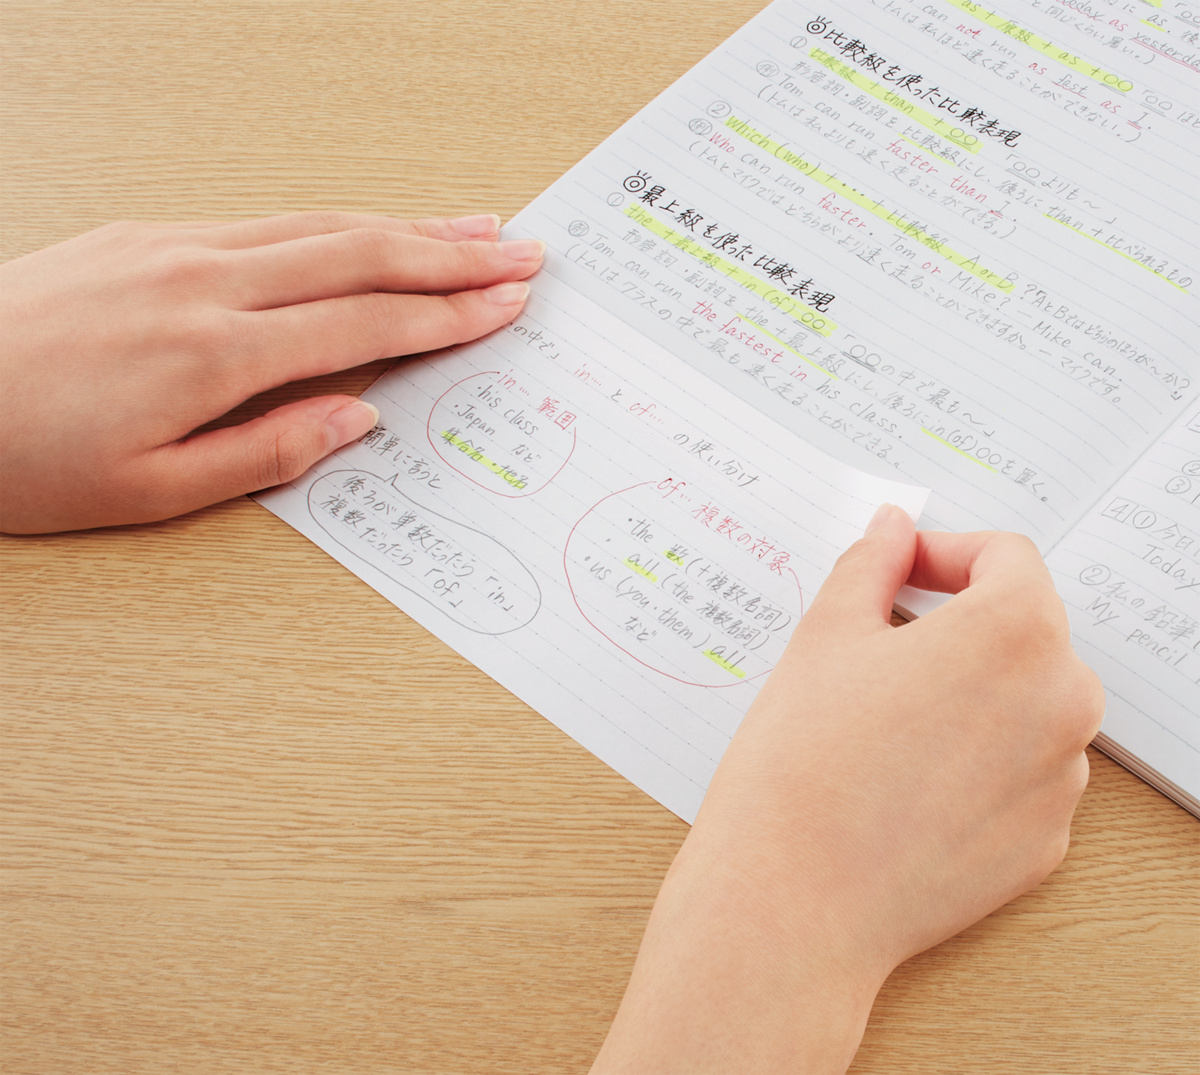 as + 原級 + as + ○○
not run as fast as I.
(トムは私ほど速く走ることができない。)
◎比較級を使った比較表現
① 比較級 + than + ○○ 「○○よりも~」
形容詞・副詞を比較級にし、後ろにthan+比べられるもの
例 Tom can run faster than I.
(トムは私よりも速く走ることができる。)
② Which (who) + … + 比較級, A or B ? 「AとBではどちらのほうが~か?」
例 Who can run faster. Tom or Mike? — Mike can.
(トムとマイクではどちらがより速く走ることができますか。— マイクです。
◎最上級を使った比較表現
① the + 最上級 + in (of) ○○ 「○○の中で最も~」
形容詞・副詞をthe+最上級にし、後ろにin(of)○○を置く。
例 Tom can run the fastest in his class.
(トムはクラスの中で最も速く走ることができる。
の中で」 in… と of… の使い分け
in… 範囲
・his class
・Japan など
集合名・地名
of… 複数の対象
・the 数(+複数名詞)
・all (the 複数名詞)
・us (you・them) all
など
簡単に言うと
後ろが単数だったら「in」
複数だったら「of」
4 ① 今日
Today
② 私の鉛筆
My pencil